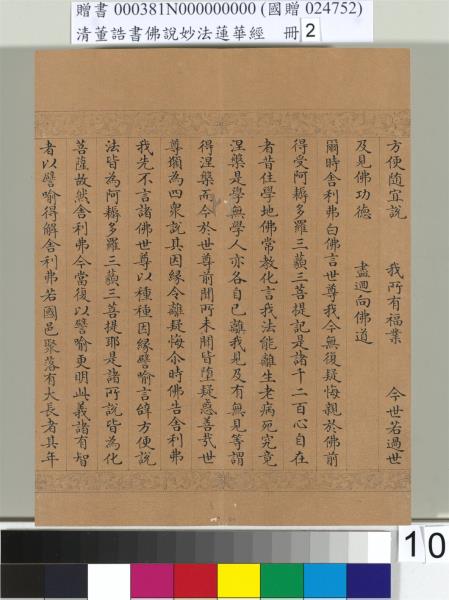 贈書 000381N000000000 (國贈 024752)
清董誥書佛說妙法蓮華經 冊 2
方便隨宜說 我所有福業 今世若過世
及見佛功德 盡迴向佛道
爾時舍利弗白佛言世尊我今無復疑悔親於佛前
得受阿耨多羅三藐三菩提記是諸千二百心自在
者昔住學地佛常教化言我法能離生老病死究竟
涅槃是學無學人亦各自已離我見及有無見等謂
得涅槃而今於世尊前聞所未聞皆墮疑惑善哉世
尊願為四眾說其因緣令離疑悔尒時佛告舍利弗
我先不言諸佛世尊以種種因緣譬喻言辭方便說
法皆為阿耨多羅三藐三菩提耶是諸所說皆為化
菩薩故然舍利弗今當復以譬喻更明此義諸有智
者以譬喻得解舍利弗若國邑聚落有大長者其年
10